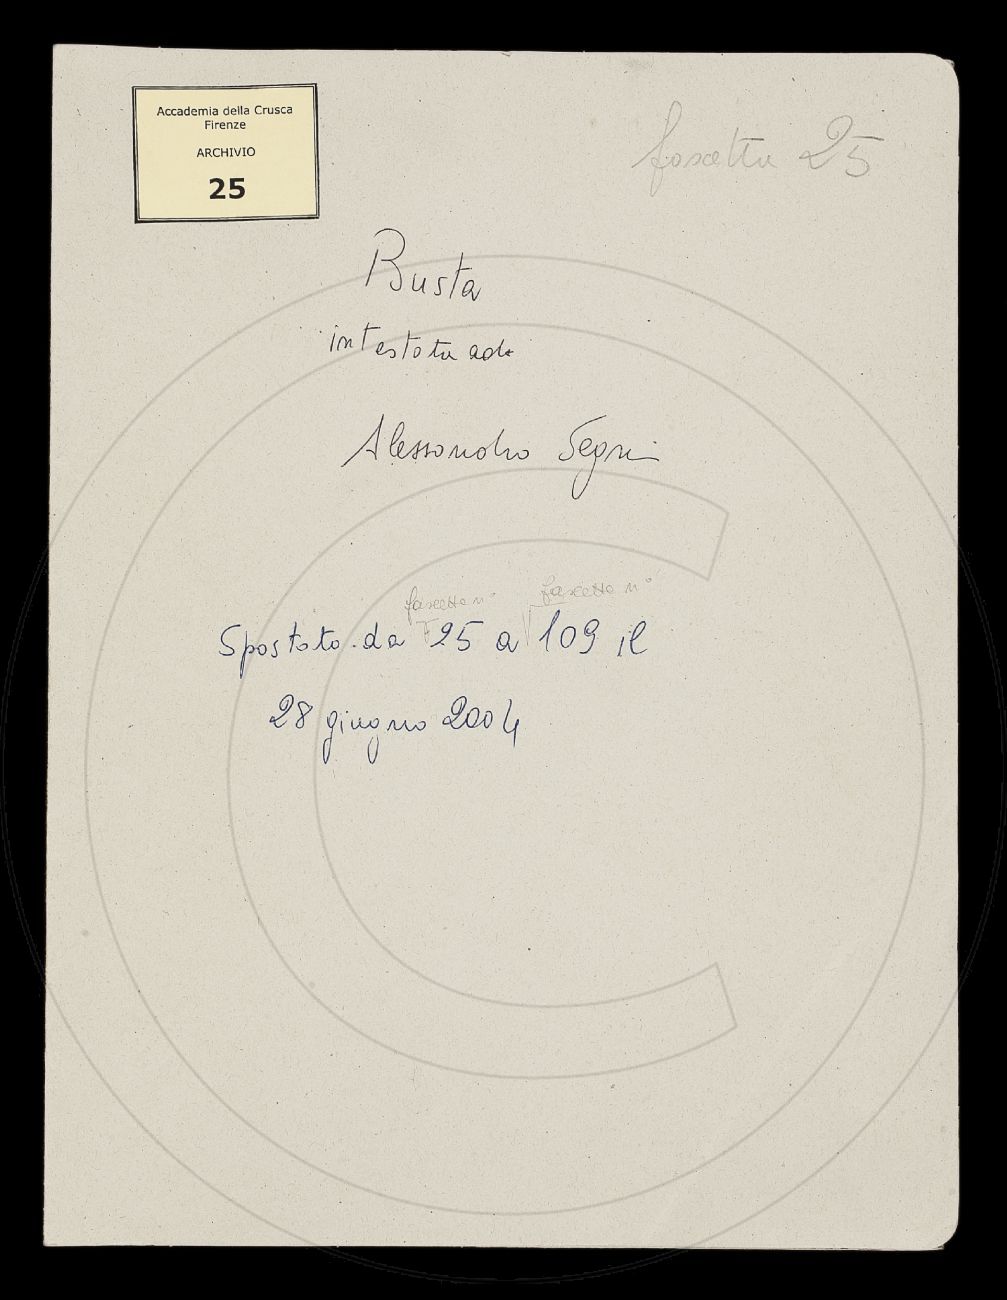 Accademia della Crusca
Firenze
ARCHIVIO
25
fascetta 25
Busta
intestata ad
Alessandro Segni
fascetta n° fascetta n°
Spostato da 25 a 109 il
28 giugno 2004